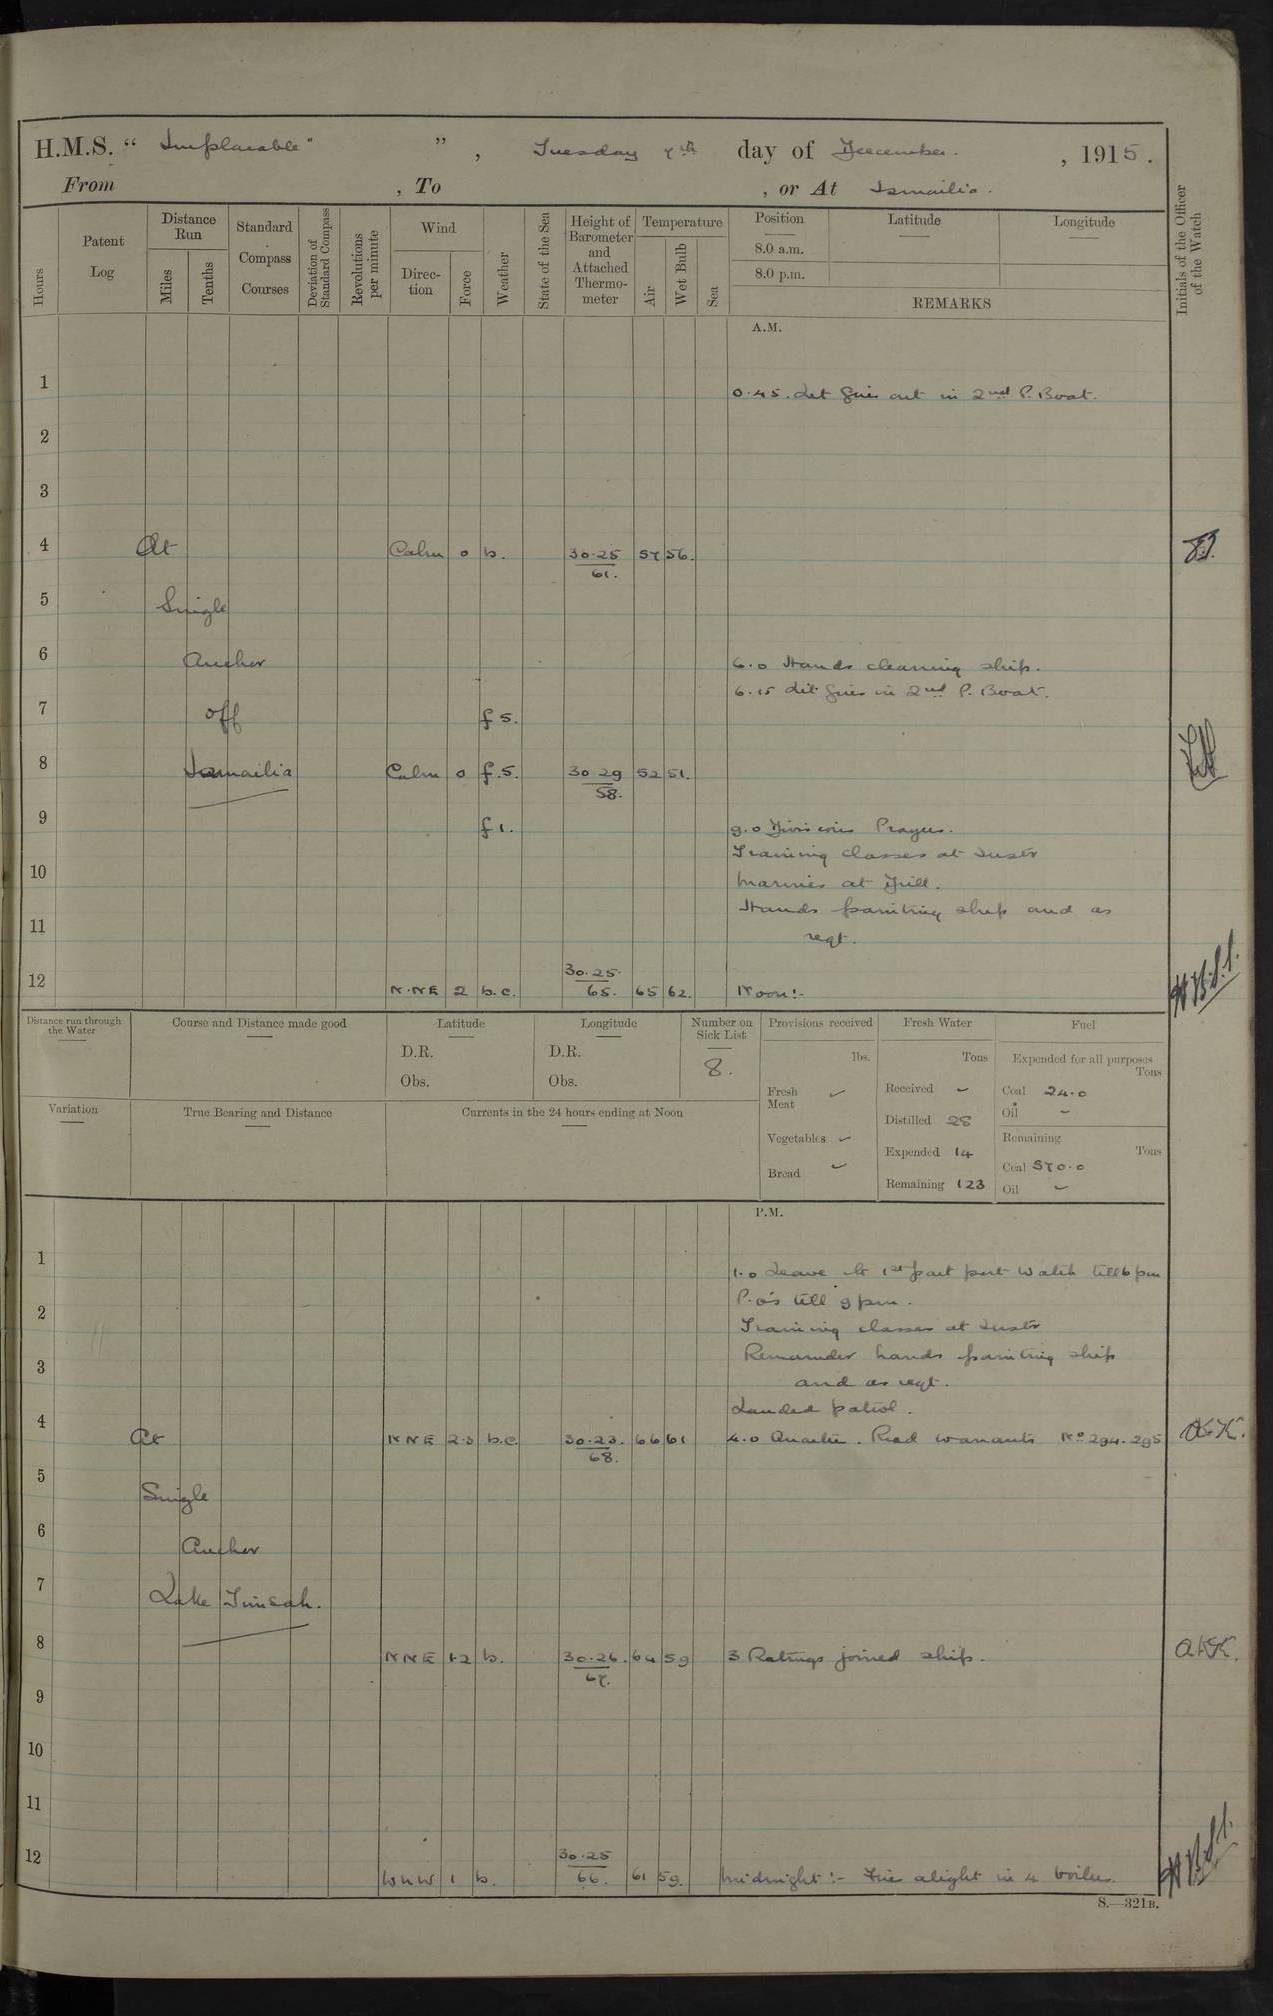 H.M.S. " Implacable " ", Tuesday 7th day of December. , 1915.
From , To , or At Ismailia.
Hours
Patent Log
Distance Run
Miles
Tenths
Standard Compass Courses
Deviation of Standard Compass
Revolutions per minute
Wind
Direction
Force
Weather
State of the Sea
Height of Barometer and Attached Thermometer
Temperature
Air
Wet Bulb
Sea
Position
8.0 a.m.
8.0 p.m.
Latitude
Longitude
REMARKS
Initials of the Officer of the Watch
A.M.
1 0.45. Let fires out in 2nd P. Boat.
2
3
4 At Calm 0 b. 30.25 57 56.
61.
5 Single
6 Anchor 6.0 Hands cleaning ship.
6.15 Lit fires in 2nd P. Boat.
7 off f 5.
8 Ismailia Calm 0 f.5. 30 29 52 51.
58.
9 f 1. 9.0 Divisions Prayers.
Training classes at Instr
10 Marines at Drill.
Hands painting ship and as
11 reqt.
12 N.NE 2 b.c. 30.25 65. 65 62. Noon:-
Distance run through the Water
Course and Distance made good
Latitude
D.R.
Obs.
Longitude
D.R.
Obs.
Number on Sick List
8.
Provisions received
lbs.
Fresh Meat ✓
Vegetables ✓
Bread ✓
Fresh Water
Tons
Received -
Distilled 28
Expended 14
Remaining 123
Fuel
Expended for all purposes
Tons
Coal 24.0
Oil -
Remaining
Tons
Coal 570.0
Oil -
Variation
True Bearing and Distance
Currents in the 24 hours ending at Noon
P.M.
1 1.0 Leave to 1st part port Watch till 6 pm
P.O's till 9 pm.
2 Training classes at Instr
Remainder hands painting ship
3 and as reqt.
Landed patrol.
4 At NNE 2.3 b.c. 30.23. 66 61 4.0 Quarters. Read warrants No 294. 295 A.K.
68.
5 Single
6 Anchor
7 Lake Timsah.
8 NNE 1-2 b. 30.26. 64 59 3 Ratings joined ship. AKK.
67.
9
10
11
12 WNW 1 b. 30.25 66. 61 59. Midnight:- Fires alight in 4 boilers.
S.—321B.